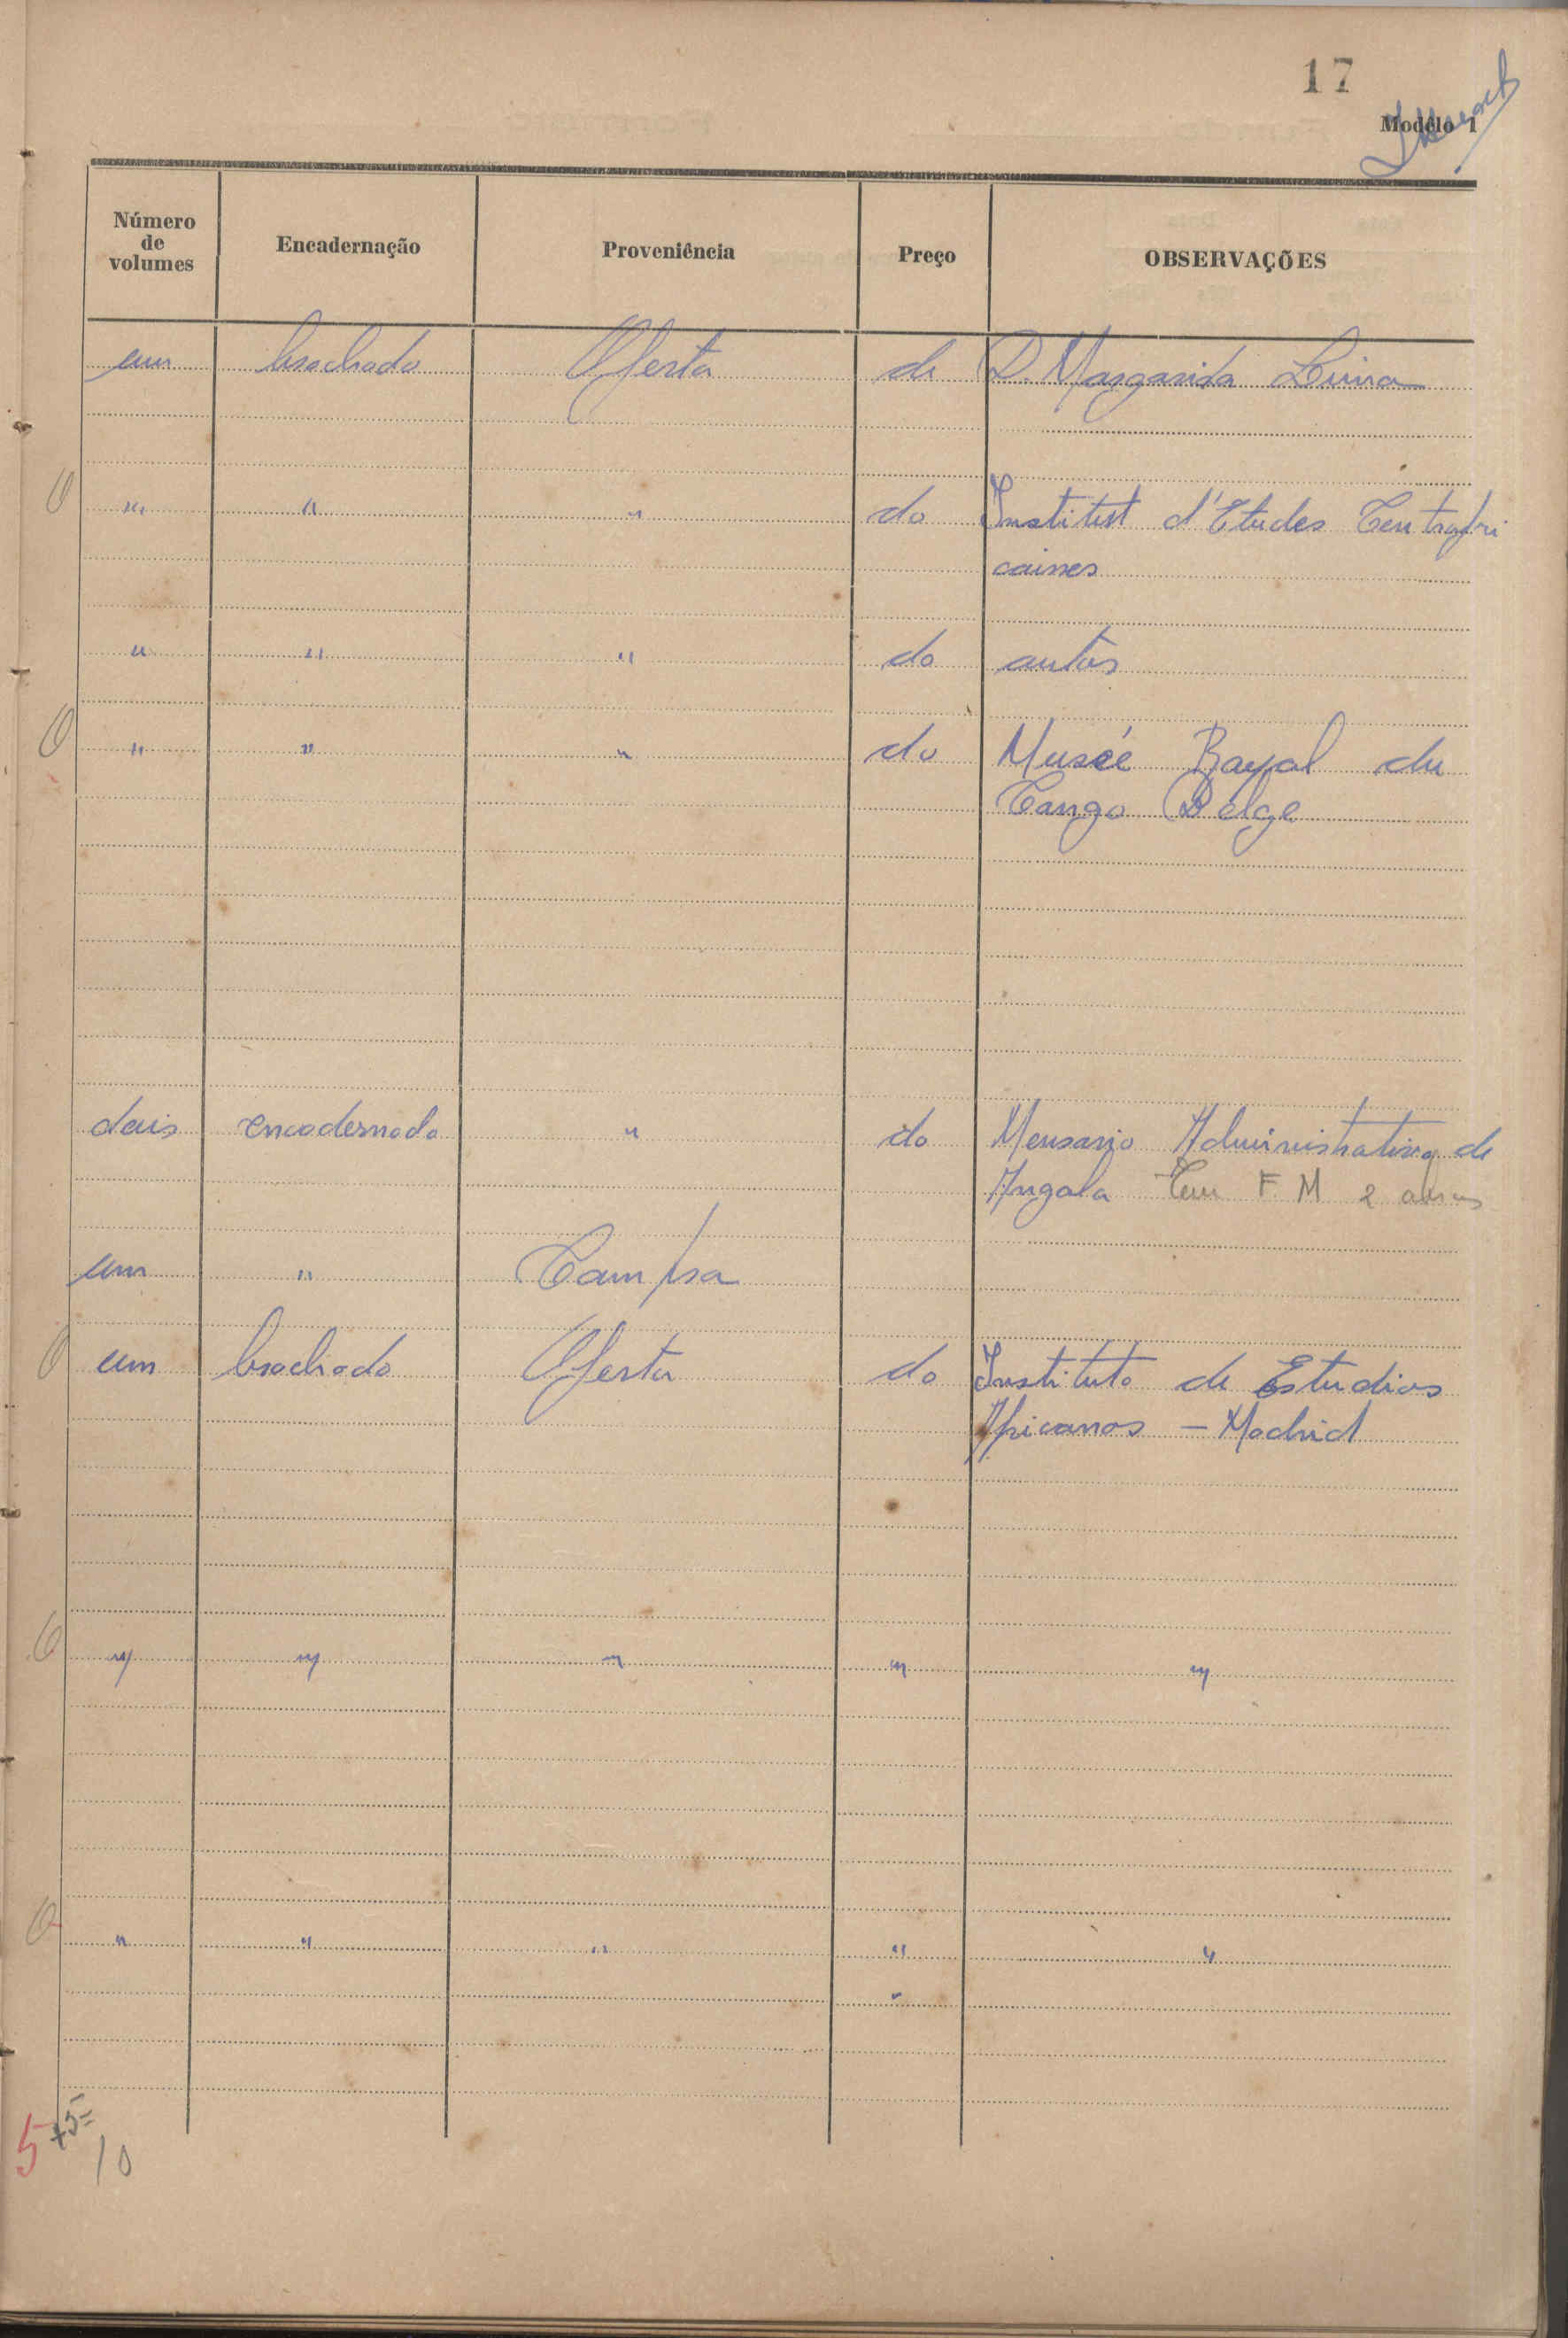 17
Modêlo 1
Número de volumes Encadernação Proveniência Preço OBSERVAÇÕES
um brochado Oferta de D. Margarida Lima
" " " do Institut d'Etudes Centrafri
caines
" " " do autor
" " " do Musée Royal du
Congo Belge
dois encadernado " do Mensario Administrativo de
Angola Tem F. M 2 anos
um " Compra
um brochado Oferta do Instituto de Estudios
Africanos - Madrid
" " " " "
" " " " "
"
5 +5=
10